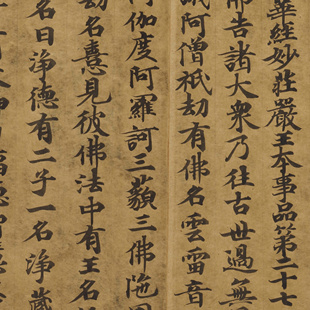 華經妙莊嚴王夲事品第二十七
佛告諸大衆乃往古世過無
阿僧祇劫有佛名雲雷音
阿伽度阿羅訶三藐三佛陁
劫名憙見彼佛法中有王名
名曰淨德有二子一名淨藏
福德